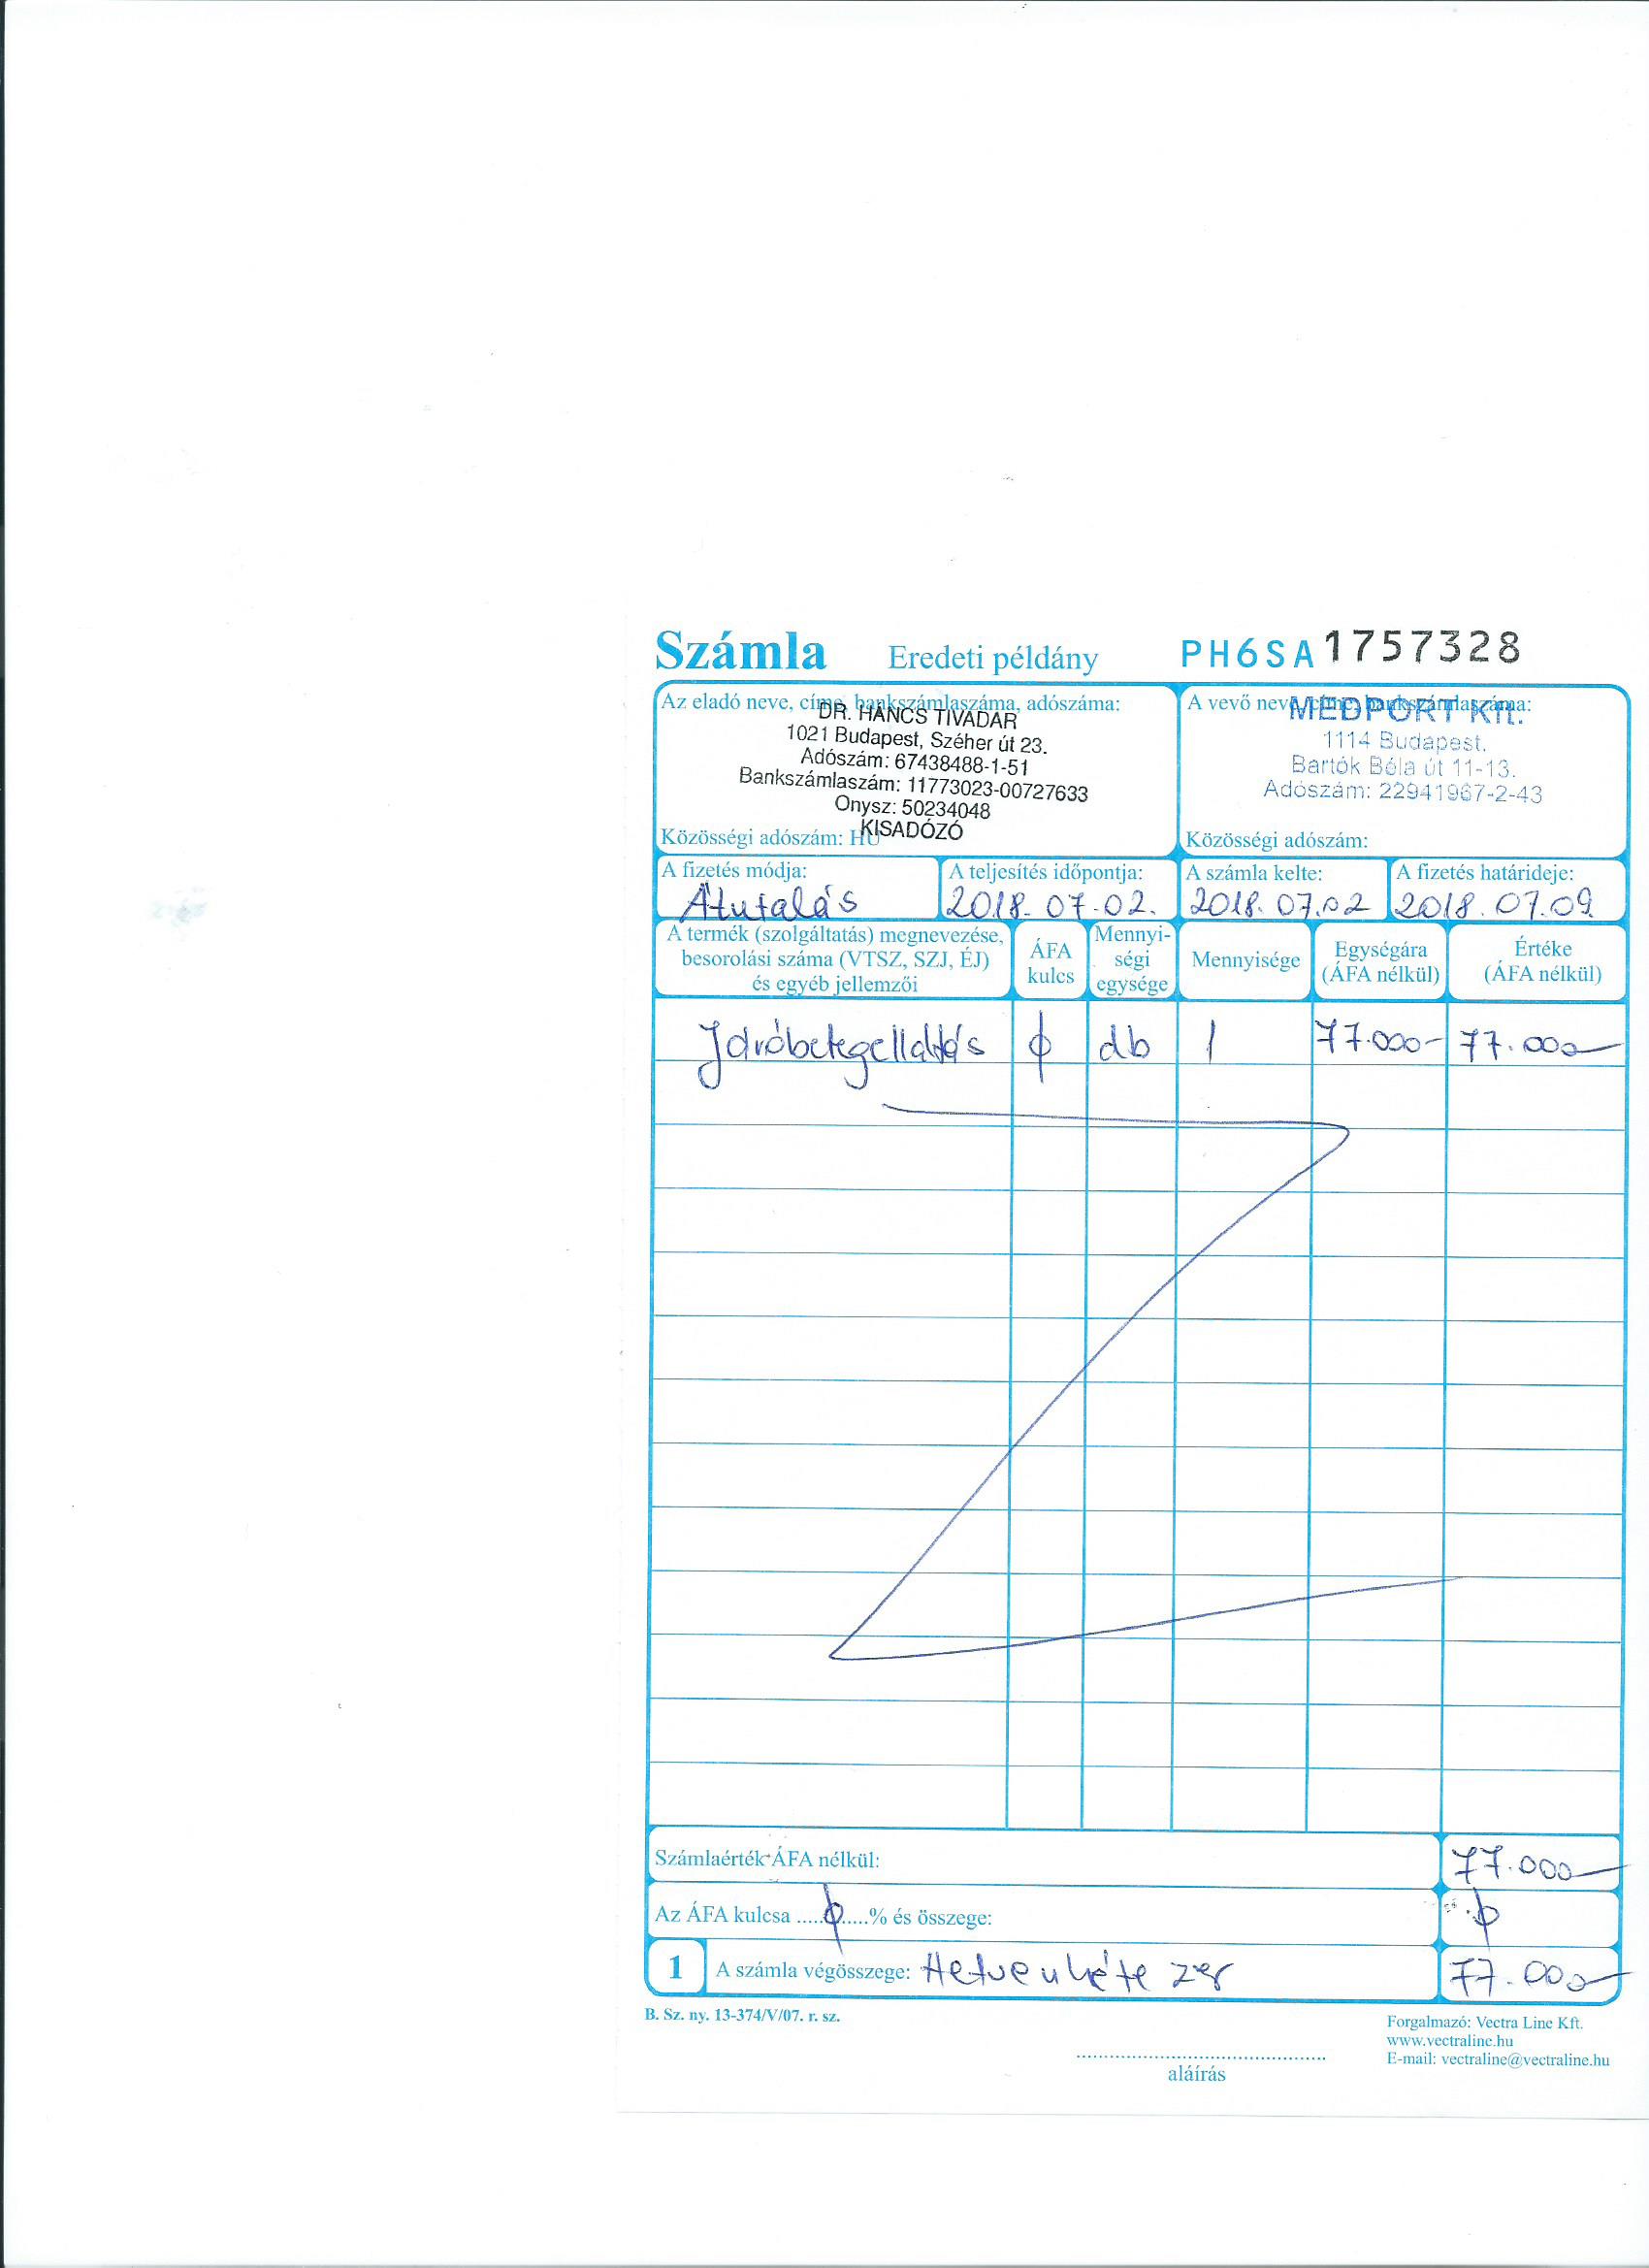 Számla Eredeti példány PH6SA 1757328
Az eladó neve, címe, bankszámlaszáma, adószáma:
DR. HANCS TIVADAR
1021 Budapest, Széher út 23.
Adószám: 67438488-1-51
Bankszámlaszám: 11773023-00727633
Onysz: 50234048
KISADÓZÓ
Közösségi adószám: HU
A vevő neve, címe, bankszámlaszáma:
MEDPORT Kft.
1114 Budapest.
Bartók Béla út 11-13.
Adószám: 22941967-2-43
Közösségi adószám:
A fizetés módja:
Átutalás
A teljesítés időpontja:
2018.07.02.
A számla kelte:
2018.07.02
A fizetés határideje:
2018.07.09.
A termék (szolgáltatás) megnevezése,
besorolási száma (VTSZ, SZJ, ÉJ)
és egyéb jellemzői
ÁFA
kulcs
Mennyi-
ségi
egysége
Mennyisége
Egységára
(ÁFA nélkül)
Értéke
(ÁFA nélkül)
Járóbetegellátás 0 db 1 77.000- 77.000-
Számlaérték ÁFA nélkül: 77.000-
Az ÁFA kulcsa .....0.....% és összege: 0
1 A számla végösszege: Hetvenhétezer 77.000-
B. Sz. ny. 13-374/V/07. r. sz.
Forgalmazó: Vectra Line Kft.
www.vectraline.hu
E-mail: vectraline@vectraline.hu
aláírás